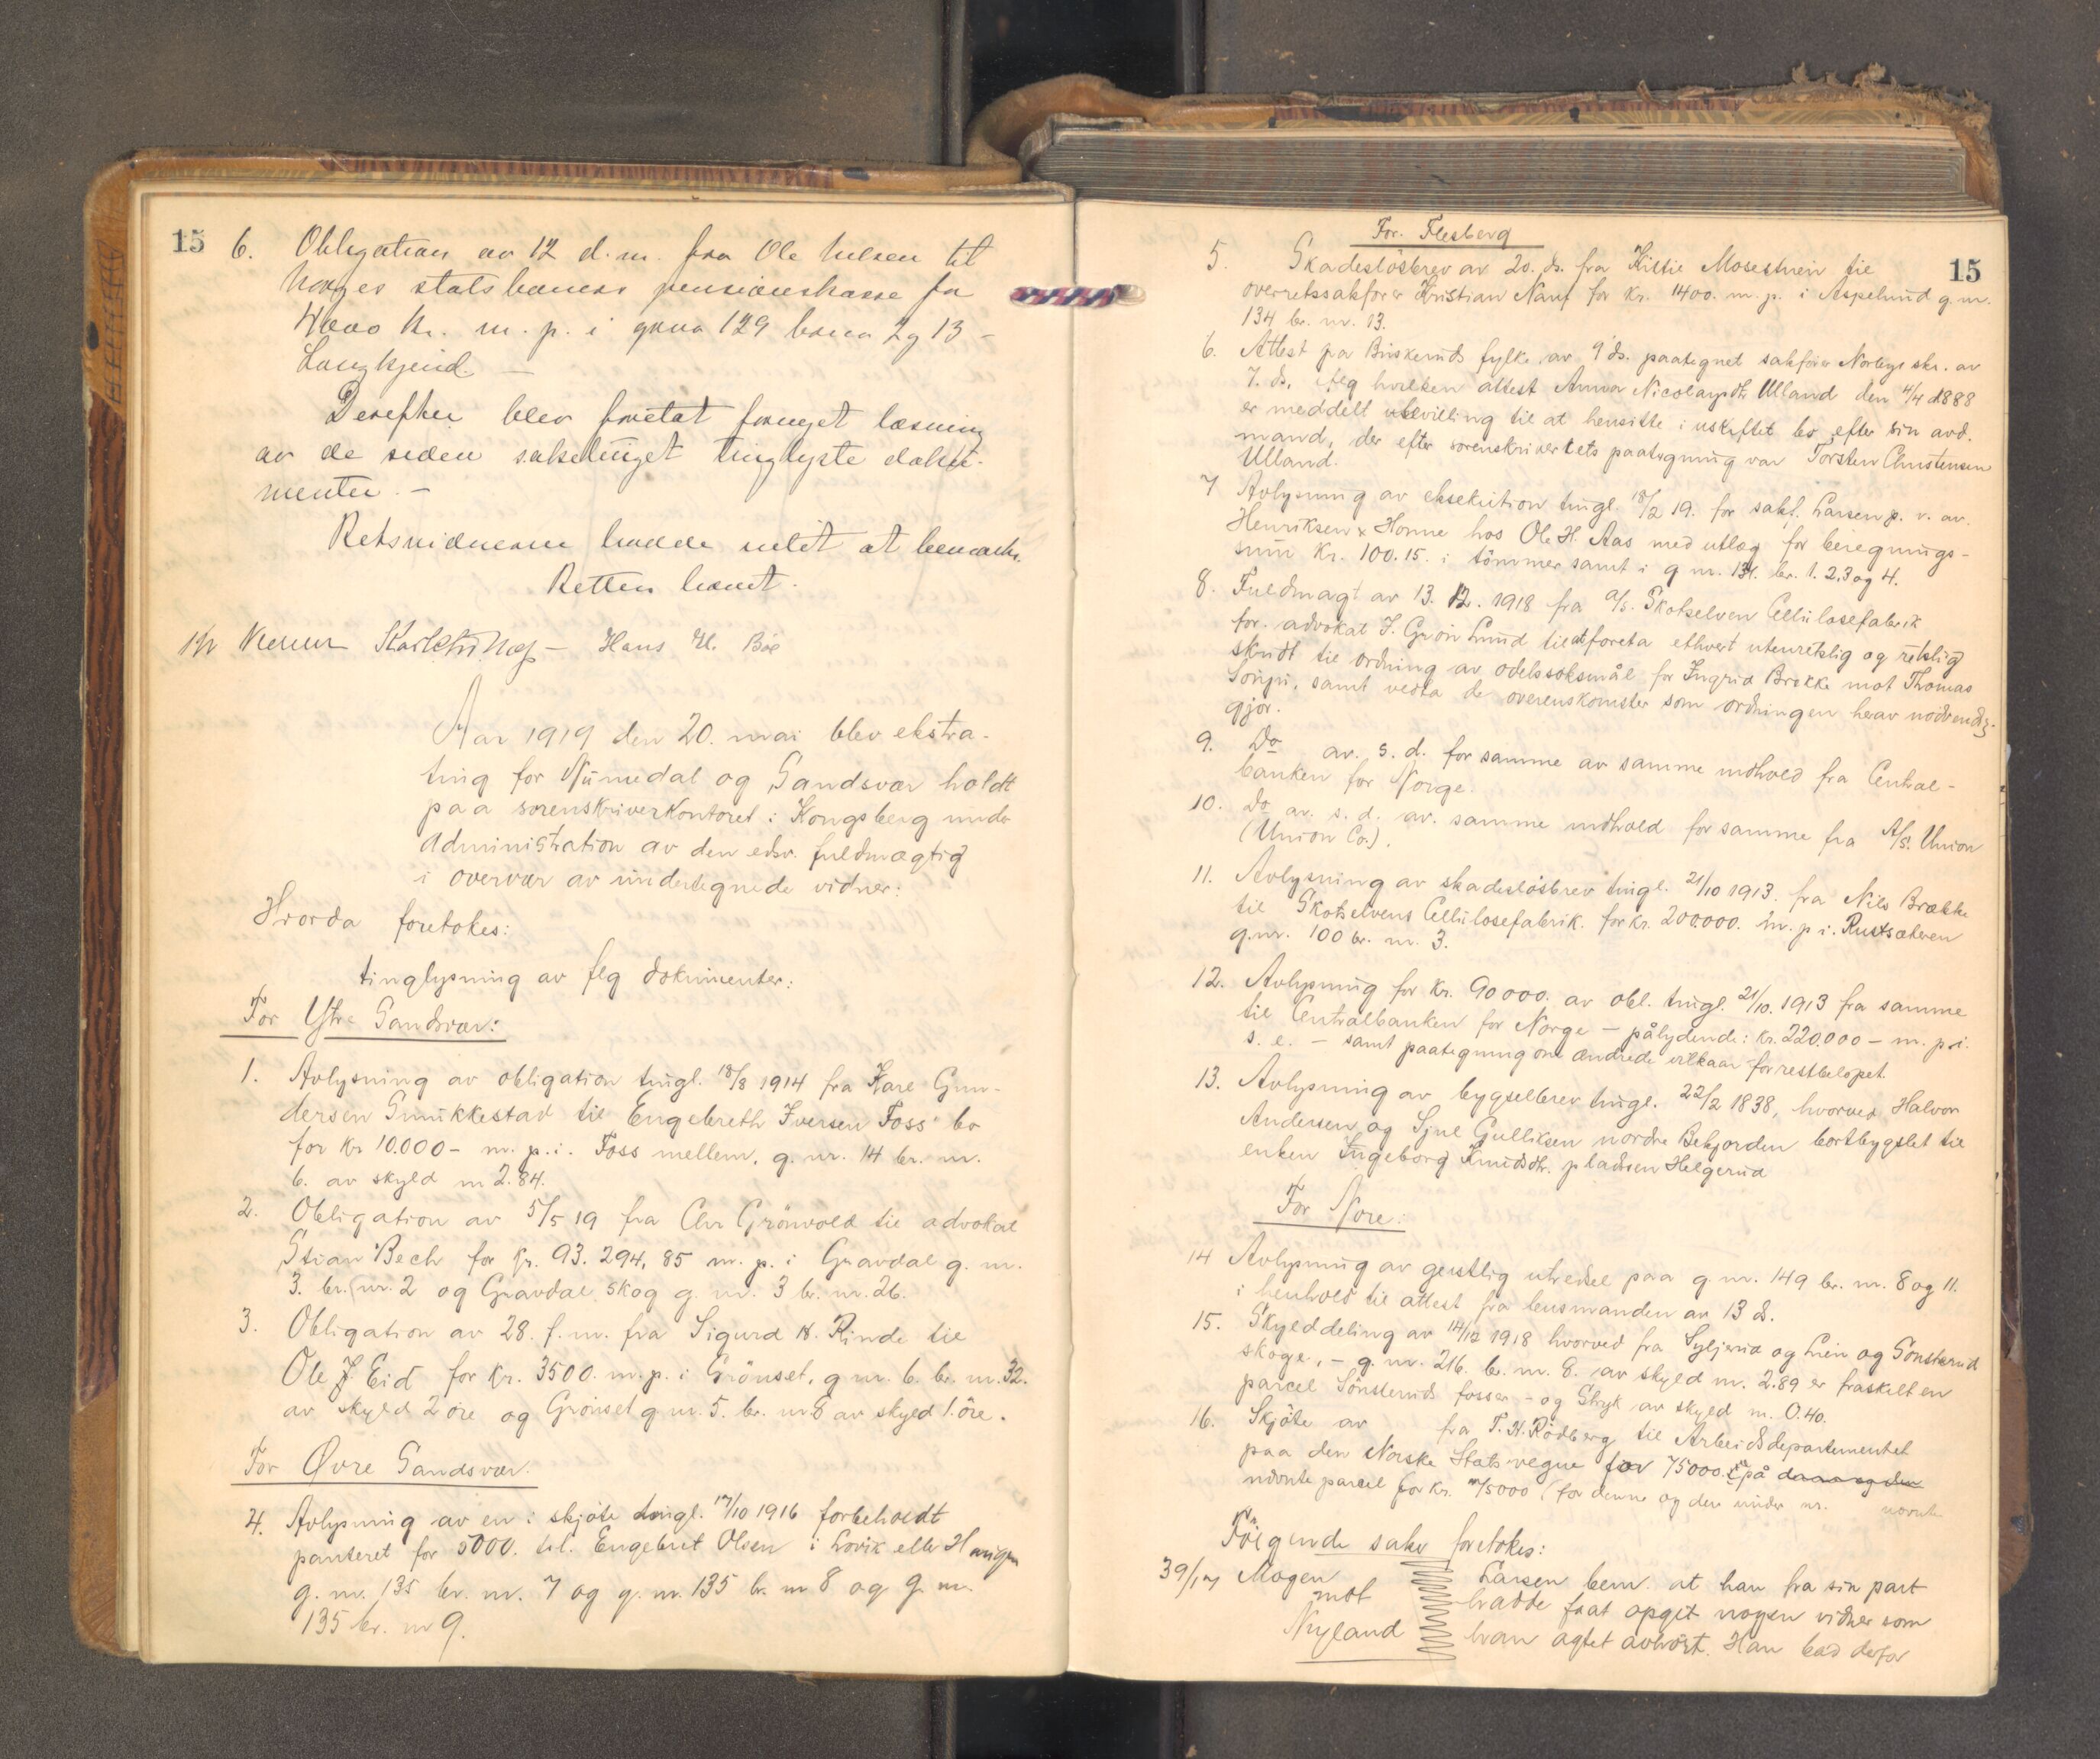 15
6. Obligation av 12 d.m. fra Ole Nelsen til
Norges statsbaners pensionskasse for
4000 kr. m. p. i gnr. 129 bnr. 2 og 13 –
Langkjend. –
Derefter blev foretat fornyet læsning
av de siden saketinget tinglyste doku-
menter. –
Retsvidnerne hadde intet at bemerke.
Retten hævet.
Hans H. Bøe
Aar 1919 den 20. mai blev ekstra-
ting for Numedal og Sandsvær holdt
paa sorenskriverkontoret i Kongsberg under
administration av den edsv. fuldmægtig
i overvær av undertegnede vidner:
Hvorda foretokes:
tinglysning av flg dokumenter:
For Ytre Sandsvær:
1. Avlysning av obligation tingl. 18/8 1914 fra Kare Gun-
dersen Smukkestad til Engebreth Iversen Foss bo
for kr 10.000 – m. p. i. Foss mellem, g. nr. 14 br. nr.
6. av skyld m 2.84.
2. Obligation av 5/5 19 fra Chr Grönvold til advokat
Stian Bech for kr. 93.294,85 m. p. i Gravdal g. nr.
3. br. nr. 2 og Gravdal skog g. nr. 3 br. nr. 26.
3. Obligation av 28. f. m. fra Sigurd H. Rinde til
Ole J. Eid for kr. 3500. m. p. i Grönset, g nr. 6. br. nr. 32.
av skyld 2 öre og Grönset g nr. 5. br. nr 8 av skyld 1. öre.
For Øvre Sandsvær.
4. Avlysning av en i skjöte tingl. 17/10 1916 forbeholdt
panteret for 5000. til. Engebret Olsen i Lovik eller Haugen
g. nr. 135 br. nr. 7 og g. nr. 135 br. nr 8 og g. nr.
135 br. nr 9.
15
For. Flesberg
5. Skadeslösbrev av 20. ds. fra Kistie Mosestuen til
overretssakförer Kristian Nanf for kr. 1400. m. p. i Aspelund g. nr.
134 br. nr. 13.
6. Attest fra Buskeruds fylke av 9 ds. paategnet sakförer Norbys skr. av
7. ds. iflg hvilken attest Anna Nicolaysdtr Ulland den 4/4 1888
er meddelt ubevilling til at hensitte i uskiftet bo efter sin avd.
mand, der efter sorenskriverets paategning var Torsten Christensen
Ulland.
7 Avlysning av eksekution tingl. 18/2 19. for sakf. Larsen p. v. av.
Henriksen & Honne hos Ole H. Aas med utlæg for beregnings-
sum kr. 100.15. i tömmer samt i g nr. 131. br. 1. 2. 3 og 4.
8. Fuldmagt av 13. 12. 1918 fra A/S. Skotselven Cellulosefabrik
for. advokat J. Grön Lund til at foreta ethvert utenretslig og retslig
skridt til ordning av odelssöksmål for Ingrid Brekke mot Thomas
samt vedta de overenskomster som ordningen herav nödvendig-
gjör.
9. Do av. s. d. for samme av samme indhold fra Central-
banken for Norge.
10. Do av. s. d. av. samme indhold for samme fra A/S. Union
(Union Co.).
11. Avlysning av skadeslösbrev tingl. 21/10 1913. fra Nils Brække
til Skotselvens Cellulosefabrik. for kr. 200.000. m. p i. Rustsæteren
g. nr. 100 br. nr. 3.
12. Avlysning for kr. 90 000. av obl. tingl. 21/10. 1913 fra samme
til Centralbanken for Norge – pålydende: kr. 220.000 – m. p. i.
s. e. – samt paategning om ændrede vilkaar for restbelöpet.
13. Avlysning av bygselbrev tingl. 22/2 1838, hvorved Halvor
Andersen og Sjul Gulliksen nordre Bekjorden bortbygslet til
enken Ingeborg Knudsdtr. pladsen Helgerud
For Nore:
14 Avlysning av geistlig utredsel paa g nr. 149 br. nr. 8 og 11.
i henhold til attest fra lensmanden av 13 d.
15. Skylddeling av 14/12 1918 hvorved fra Syljerud og Lien og Sönsterud
skoge, – g. nr. 216. br. nr. 8. av skyld m. 2.89 er fraskilt en
parcel Sönsteruds fosser – og Stryk av skyld m. 0.40.
16. Skjöte av fra T. H. Rödberg til Arbeidsdepartementet
paa den Norske Stats vegne for 75000. på denne og den
nævnte parcel for kr. 75000 (for denne og den under nr. nævnte
Fölgende saker foretokes:
39/17 Mogen
mot
Nyland
Larsen bem. at han fra sin part
hadde faat opgit nogen vidner som
han agtet avhört. Han bad derfor